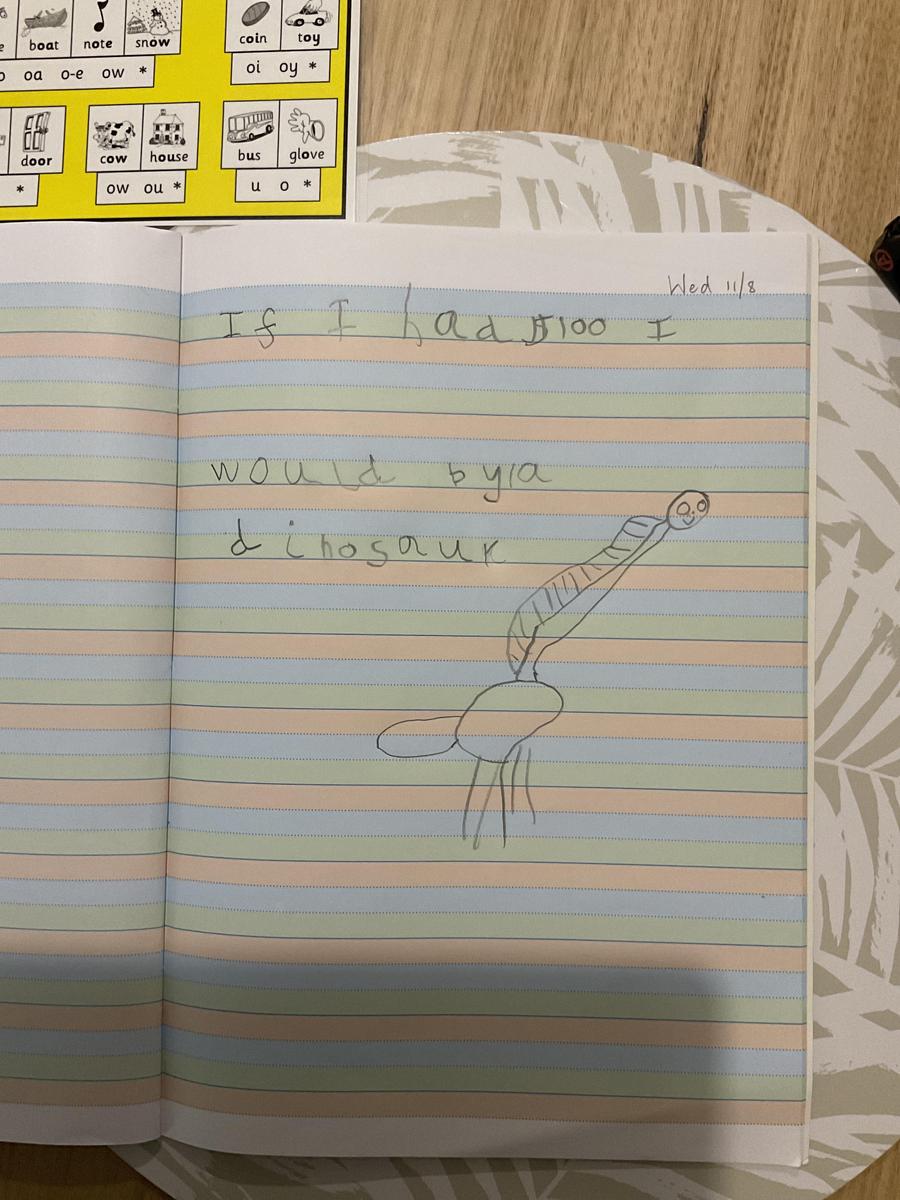 boat note snow coin toy
oa o-e ow * oi oy *
door cow house bus glove
* ow ou * u o *
Wed 11/8
If I had $100 I
would by a
dinosaur